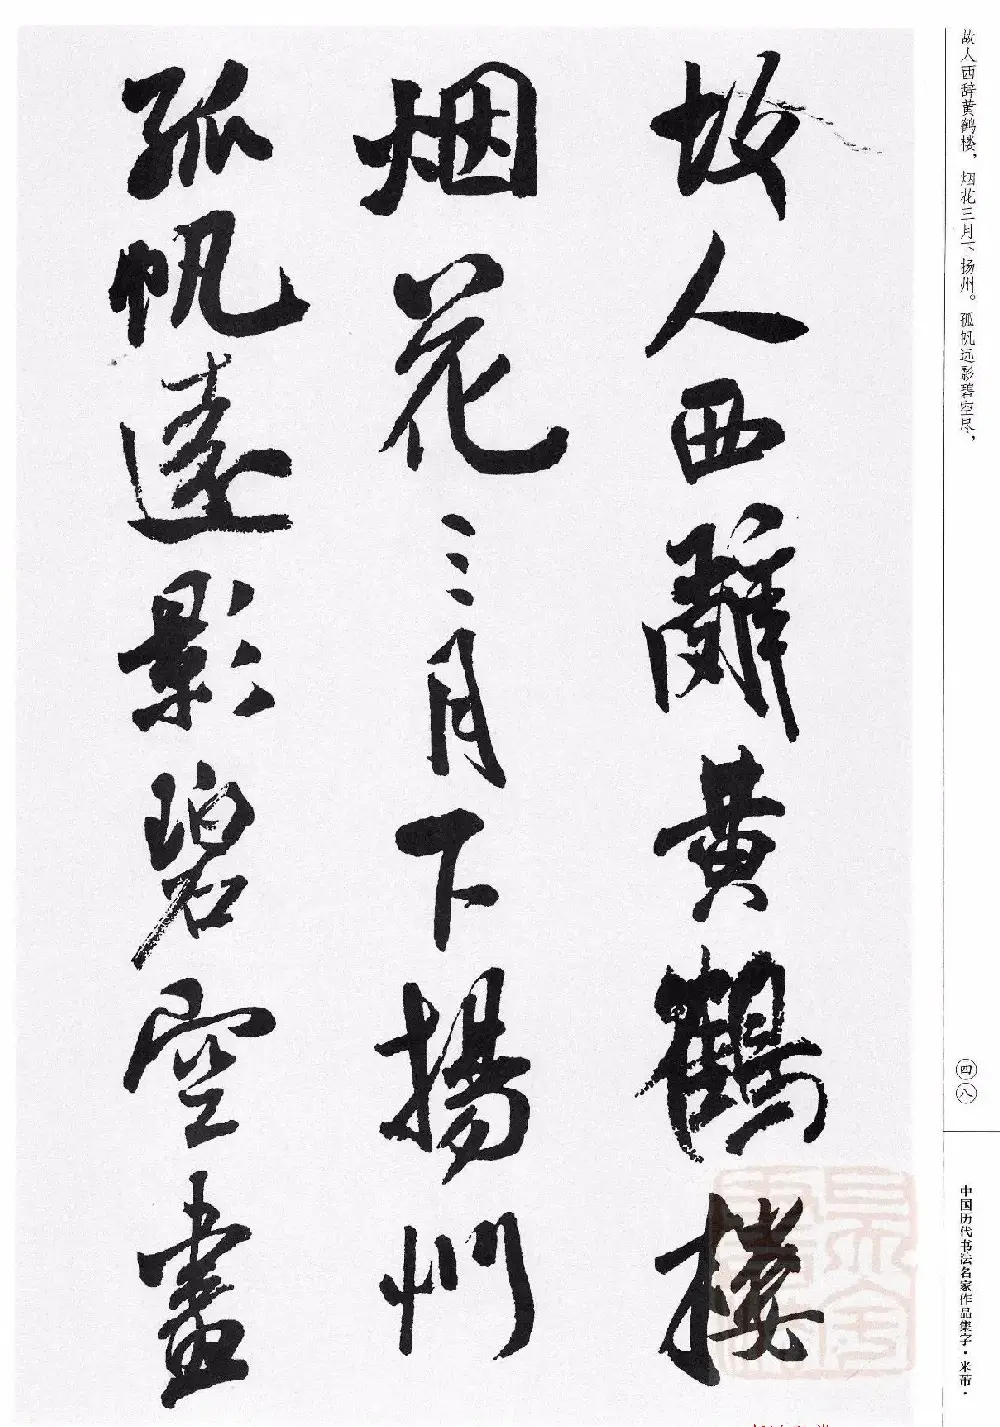 故人西辞黄鹤楼，烟花三月下扬州。孤帆远影碧空尽，
故人西辭黄鶴樓
烟花三月下揚州
孤帆遠影碧空盡
四八
中国历代书法名家作品集字·米芾·